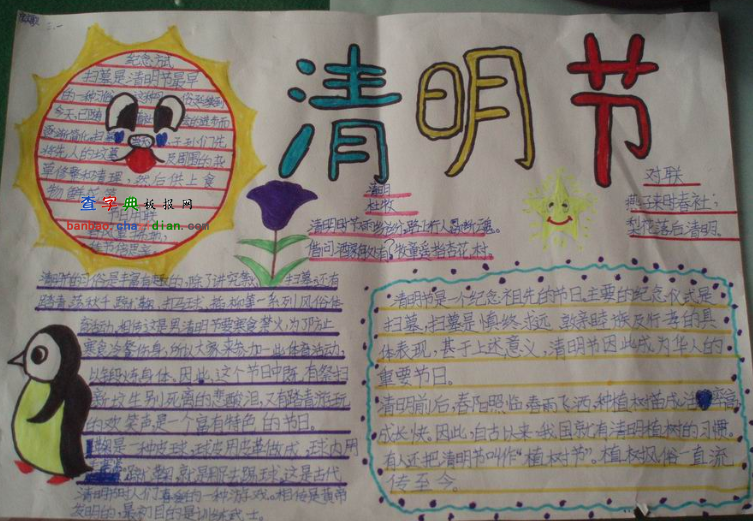 清明节
纪念方式
扫墓是清明节最早
的一种习俗
今天,已
将先人的坟墓 及周围的杂
草修整和清理,然后供上食
物鲜花等
查字典板报网
banbao.chazidian.com
清明
杜牧
清明时节雨纷纷,路上行人欲断魂。
借问酒家何处有?牧童遥指杏花村
对联
燕子来时春社;
梨花落后清明.
清明节的习俗是丰富有趣的,除了讲究禁 扫墓,还有
踏青、荡秋千、蹴鞠、打马球、插柳等一系列风俗体
育活动,相传这是因清明节要寒食禁火,为了防止
寒食冷餐伤身,所以大家来参加一些体育活动,
以锻炼身体。因此,这个节日中既有祭扫
新坟生别死离的悲酸泪,又有踏青游玩
的欢笑声,是一个富有特色的节日。
鞠是一种皮球,球皮用皮革做成,球内用
蹴鞠,就是用足踢球。这是古代
清明时人们喜爱的一种游戏。相传是黄帝
发明的,最初目的是训练武士。
清明节是一个纪念祖先的节日。主要的纪念仪式是
扫墓,扫墓是慎终追远、敦亲睦族及行孝的具
体表现,基于上述意义,清明节因此成为华人的
重要节日。
清明前后,春阳照临,春雨飞洒,种植树苗成活率高,
成长快。因此,自古以来,我国就有清明植树的习惯。
有人还把清明节叫作“植树节”。植树风俗一直流
传至今。